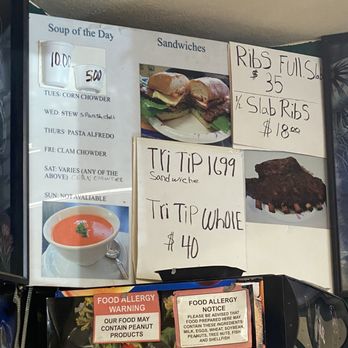 Soup of the Day
10.00
5.00
TUES: CORN CHOWDER
WED: STEW
THURS: PASTA ALFREDO
FRI: CLAM CHOWDER
SAT: VARIES (ANY OF THE
ABOVE) CORN CHOWDER
SUN: NOT AVALIABLE
Sandwiches
Ribs Full Slab
$ 35
½ Slab Ribs
$ 18.00
Tri Tip 1699
Sandwiche
Tri Tip Whole
$ 40
FOOD ALLERGY
WARNING
OUR FOOD MAY
CONTAIN PEANUT
PRODUCTS
FOOD ALLERGY
NOTICE
PLEASE BE ADVISED THAT
FOOD PREPARED HERE MAY
CONTAIN THESE INGREDIENTS:
MILK, EGGS, WHEAT, SOYBEAN,
PEANUTS, TREE NUTS, FISH
AND SHELLFISH